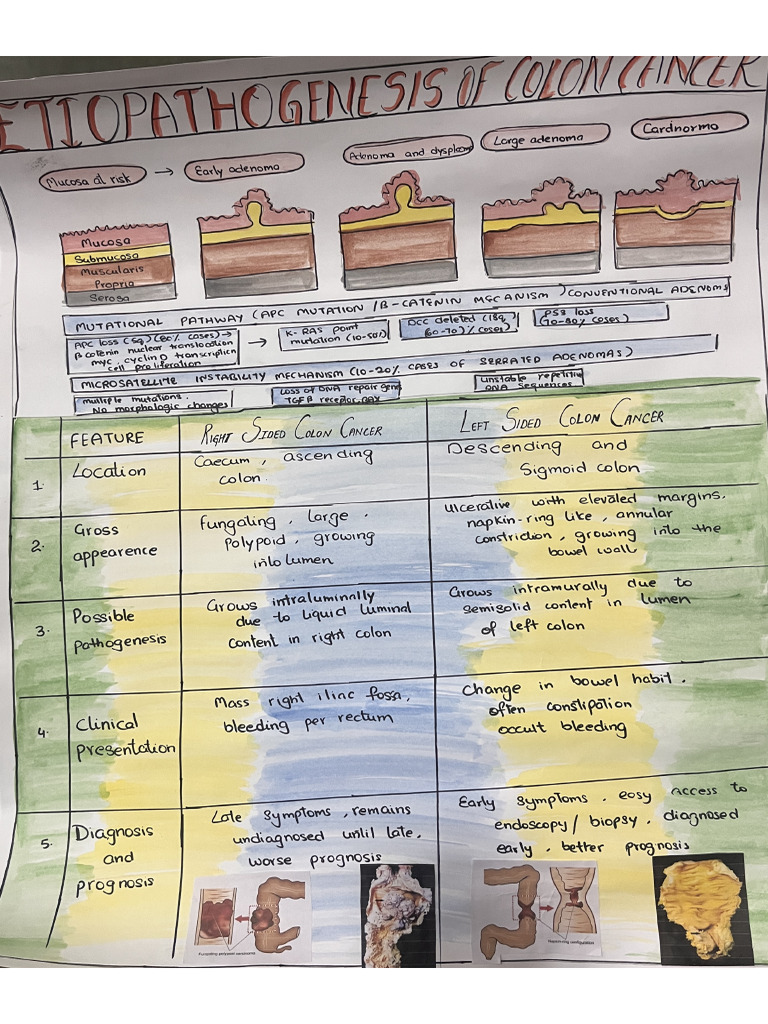 ETIOPATHOGENESIS OF COLON CANCER
Mucosa at risk → Early adenoma
Adenoma and dysplasm
Large adenoma
Cardnormo
Mucosa
Submucosa
Muscularis
Propria
Serosa
MUTATIONAL PATHWAY (APC MUTATION /B-CATENIN MECANISM) CONVENTIONAL ADENOMS
APC loss (5q) (80% cases) →
B catenin nuclear translocation
myc, cyclin D transcription
cell proliferation
→
K-RAS point
mutation (10-50%)
DCC deleted (18q)
60-70% cases)
P53 loss
(70-80% cases)
MICROSATELLITE INSTABILITY MECHANISM (10-20% CASES OF SERRATED ADENOMAS)
Multiple mutations.
No morphologic changes
Loss of DNA repair gene
TGF B receptor, BAX
Unstable repetitive
DNA sequences
FEATURE
RIGHT SIDED COLON CANCER
LEFT SIDED COLON CANCER
1.
Location
Caecum, ascending
colon.
Descending and
Sigmoid colon
2.
Gross
appearence
Fungating, large,
Polypoid, growing
into lumen
Ulcerative with elevated margins,
napkin-ring like, annular
constriction, growing into the
bowel wall
3.
Possible
pathogenesis
Grows intraluminally
due to liquid luminal
content in right colon
Grows intramurally due to
semisolid content in lumen
of left colon
4.
Clinical
presentation
Mass right iliac fossa,
bleeding per rectum
Change in bowel habit.
often constipation
occult bleeding
5.
Diagnosis
and
prognosis
Late symptoms, remains
undiagnosed until late,
worse prognosis
Early symptoms, easy access to
endoscopy/ biopsy, diagnosed
early, better prognosis
Fungating polypoid carcinoma
Napkin-ring configuration